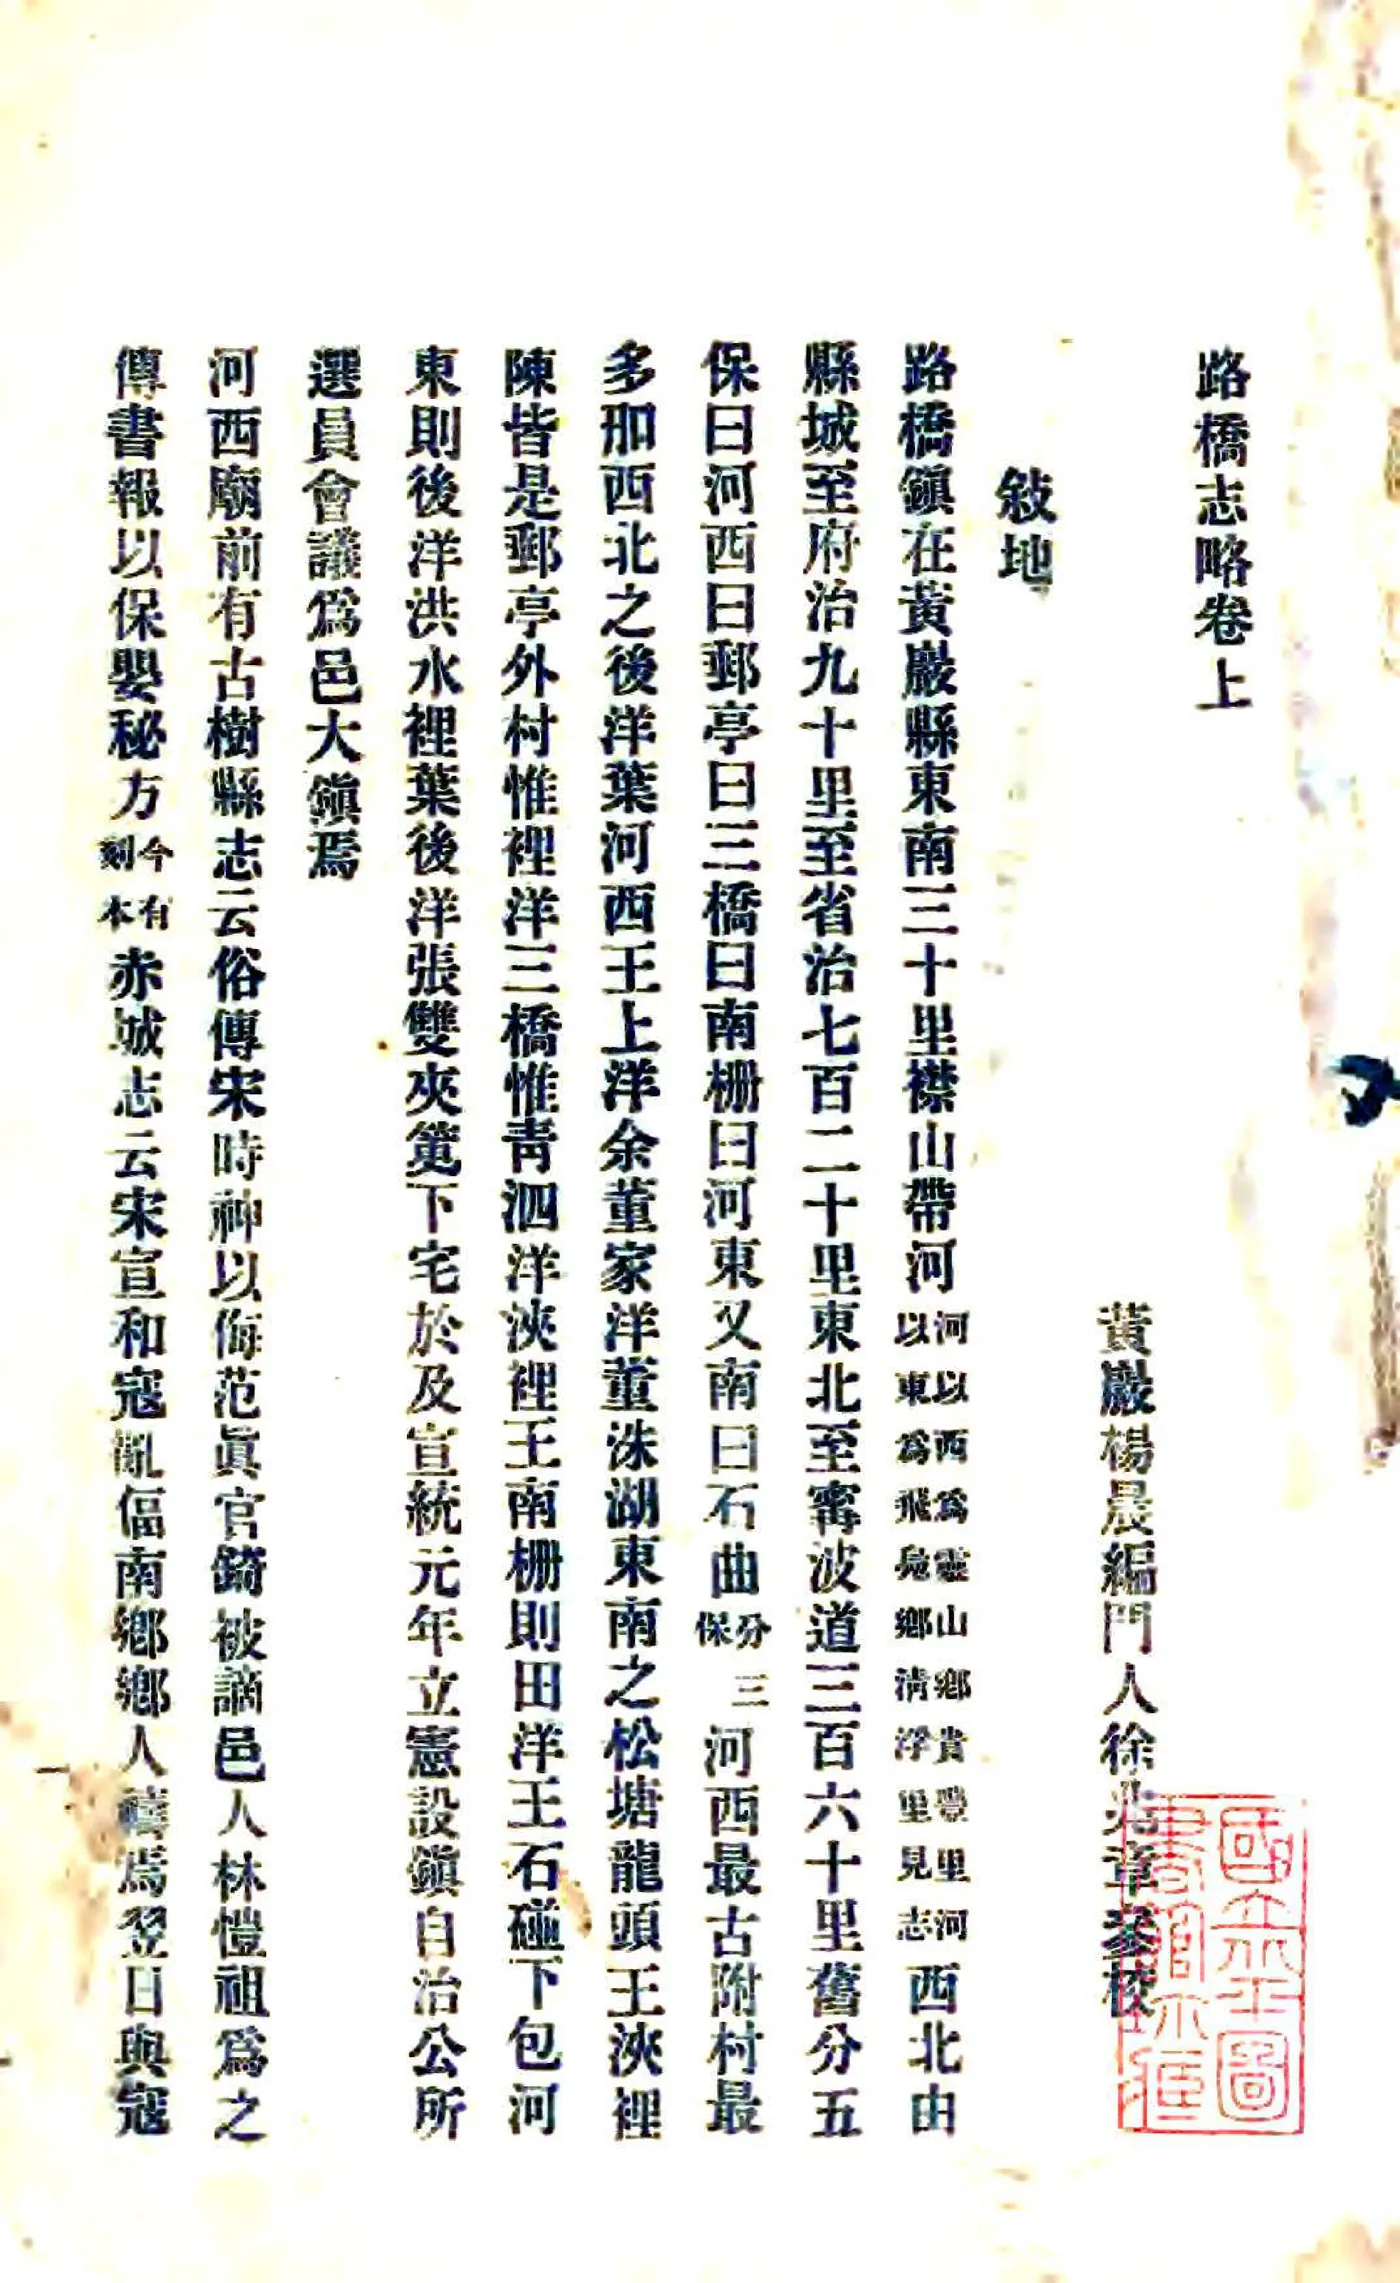 路橋志略卷上
黃巖楊晨編門人徐兆章參校
敍地
路橋鎭在黃巖縣東南三十里襟山帶河河以西爲靈山鄕貴豐里河以東爲飛鳧鄕淸浮里見志西北由
縣城至府治九十里至省治七百二十里東北至甯波道三百六十里舊分五
保曰河西曰郵亭曰三橋曰南栅曰河東又南曰石曲分三保河西最古附村最
多那西北之後洋葉河西王上洋余董家洋董洙湖東南之松塘龍頭王浹裡
陳皆是郵亭外村惟裡洋三橋惟靑泗洋浹裡王南栅則田洋王石碰下包河
東則後洋洪水裡葉後洋張雙夾篼下宅於及宣統元年立憲設鎭自治公所
選員會議爲邑大鎭焉
河西廟前有古樹縣志云俗傳宋時神以侮范眞官錡被謫邑人林愷祖爲之
傳書報以保嬰秘方今有刻本赤城志云宋宣和寇亂偪南鄕鄕人禱焉翌日與寇
國立北平圖書館收藏